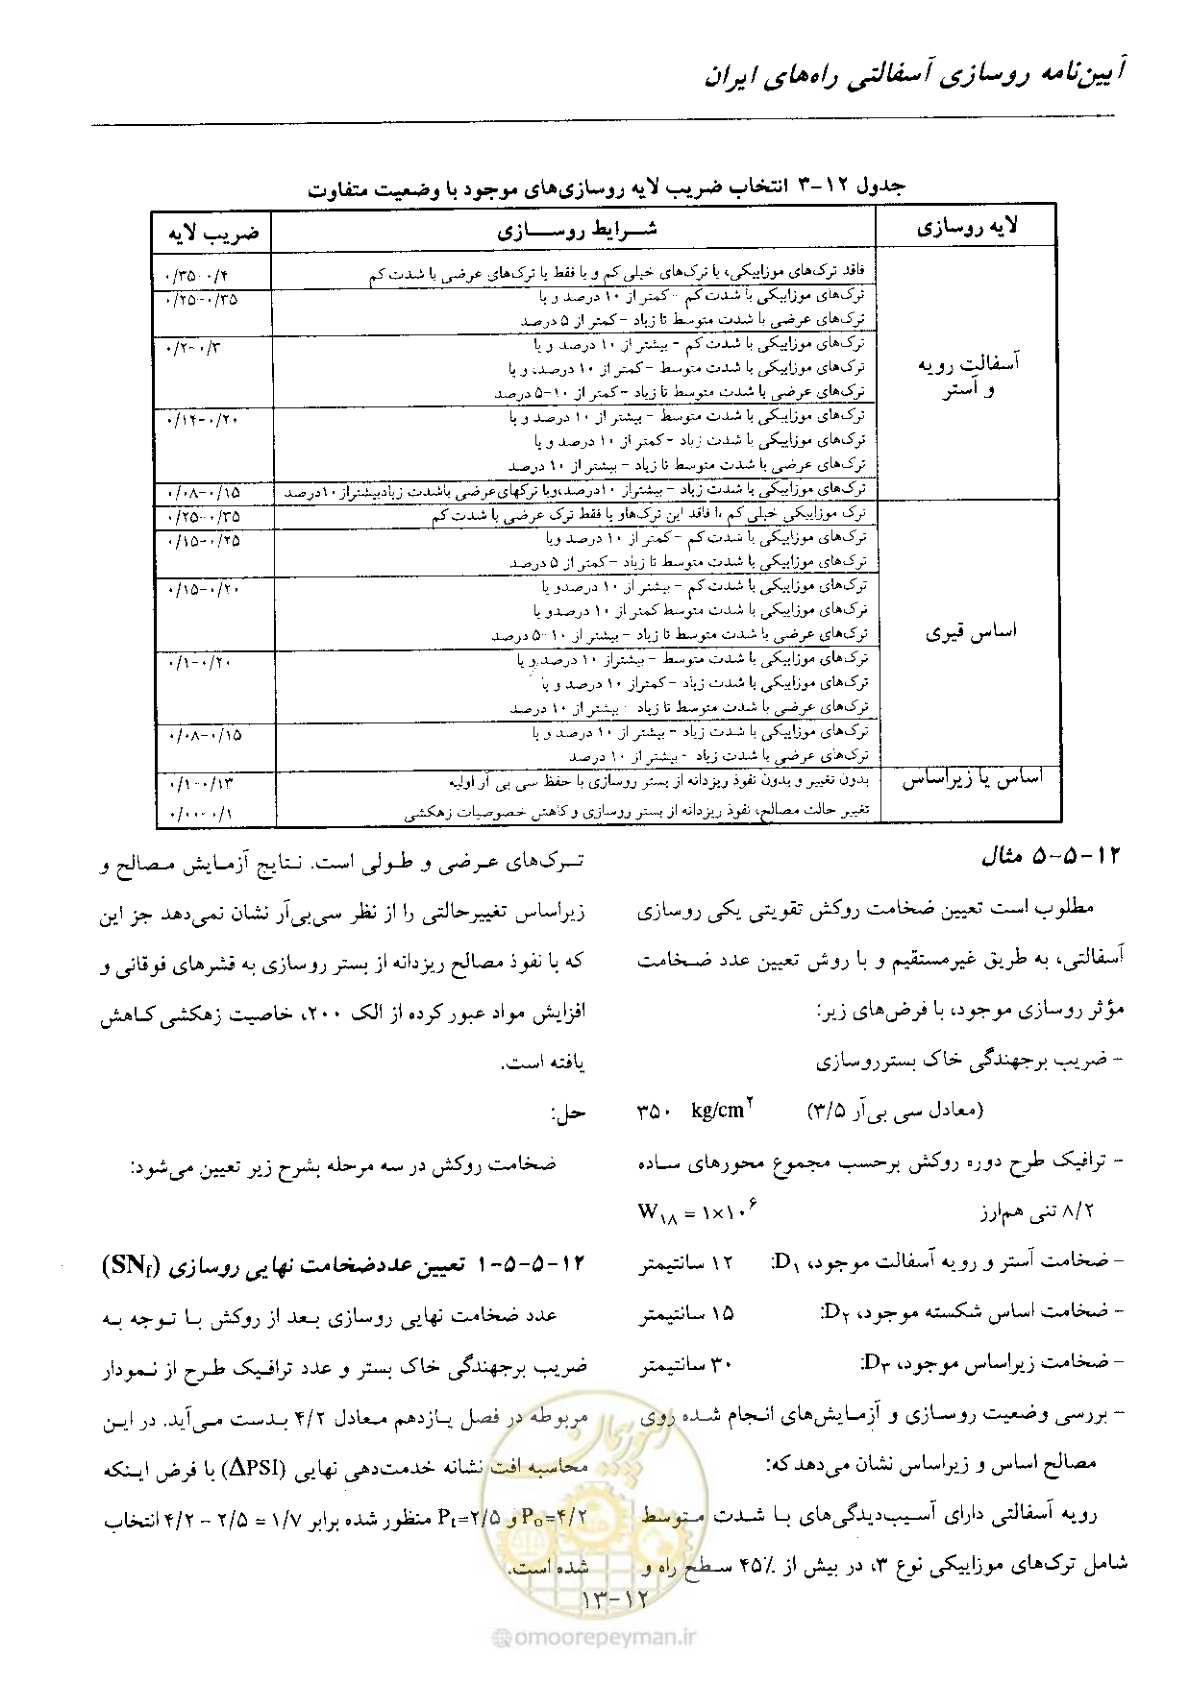 آیین‌نامه روسازی آسفالتی راه‌های ایران
جدول ۱۲-۳ انتخاب ضریب لایه روسازی‌های موجود با وضعیت متفاوت
لایه روسازی شــرایط روســـازی ضریب لایه
آسفالت رویه
و آستر
فاقد ترک‌های موزاییکی، یا ترک‌های خیلی کم و یا فقط با ترک‌های عرضی با شدت کم ۰/۳۵-۰/۴
ترک‌های موزاییکی با شدت کم - کمتر از ۱۰ درصد و یا ۰/۲۵-۰/۳۵
ترک‌های عرضی با شدت متوسط تا زیاد - کمتر از ۵ درصد
ترک‌های موزاییکی با شدت کم - بیشتر از ۱۰ درصد و یا ۰/۲-۰/۳
ترک‌های موزاییکی با شدت متوسط - کمتر از ۱۰ درصد، و یا
ترک‌های عرضی با شدت متوسط تا زیاد - کمتر از ۱۰-۵ درصد
ترک‌های موزاییکی با شدت متوسط - بیشتر از ۱۰ درصد و یا ۰/۱۴-۰/۲۰
ترک‌های موزاییکی با شدت زیاد - کمتر از ۱۰ درصد و یا
ترک‌های عرضی با شدت متوسط تا زیاد - بیشتر از ۱۰ درصد
ترک‌های موزاییکی با شدت زیاد - بیشتراز ۱۰درصد،ویا ترکهای‌عرضی باشدت زیادبیشتراز۱۰درصد ۰/۰۸-۰/۱۵
اساس قیری
ترک موزاییکی خیلی کم یا فاقد این ترک‌هاو یا فقط ترک عرضی با شدت کم ۰/۲۵-۰/۳۵
ترک‌های موزاییکی با شدت کم - کمتر از ۱۰ درصد ویا ۰/۱۵-۰/۲۵
ترک‌های عرضی با شدت متوسط تا زیاد - کمتر از ۵ درصد
ترک‌های موزاییکی با شدت کم - بیشتر از ۱۰ درصدو یا ۰/۱۵-۰/۲۰
ترک‌های موزاییکی با شدت متوسط کمتر از ۱۰ درصدو یا
ترک‌های عرضی با شدت متوسط تا زیاد - بیشتر از ۱۰-۵ درصد
ترک‌های موزاییکی با شدت متوسط - بیشتراز ۱۰ درصد و یا ۰/۱-۰/۲۰
ترک‌های موزاییکی با شدت زیاد - کمتراز ۱۰ درصد و یا
ترک‌های عرضی با شدت متوسط تا زیاد - بیشتر از ۱۰ درصد
ترک‌های موزاییکی با شدت زیاد - بیشتر از ۱۰ درصد و یا ۰/۰۸-۰/۱۵
ترک‌های عرضی با شدت زیاد - بیشتر از ۱۰ درصد
اساس یا زیراساس
بدون تغییر و بدون نفوذ ریزدانه از بستر روسازی با حفظ سی بی آر اولیه ۰/۱-۰/۱۳
تغییر حالت مصالح، نفوذ ریزدانه از بستر روسازی و کاهش خصوصیات زهکشی ۰/۰۰-۰/۱
۱۲-۵-۵ مثال
مطلوب است تعیین ضخامت روکش تقویتی یکی روسازی
آسفالتی، به طریق غیرمستقیم و با روش تعیین عدد ضخامت
مؤثر روسازی موجود، با فرض‌های زیر:
- ضریب برجهندگی خاک بسترروسازی
(معادل سی بی‌آر ۳/۵) ۳۵۰ kg/cm۲
- ترافیک طرح دوره روکش برحسب مجموع محورهای ساده
۸/۲ تنی هم‌ارز W۱۸ = ۱×۱۰۶
- ضخامت آستر و رویه آسفالت موجود، D۱: ۱۲ سانتیمتر
- ضخامت اساس شکسته موجود، D۲: ۱۵ سانتیمتر
- ضخامت زیراساس موجود، D۳: ۳۰ سانتیمتر
- بررسی وضعیت روسازی و آزمایش‌های انجام شده روی
مصالح اساس و زیراساس نشان می‌دهد که:
رویه آسفالتی دارای آسیب‌دیدگی‌های با شدت متوسط
شامل ترک‌های موزاییکی نوع ۳، در بیش از ۴۵٪ سطح راه و
ترک‌های عرضی و طولی است. نتایج آزمایش مصالح و
زیراساس تغییرحالتی را از نظر سی‌بی‌آر نشان نمی‌دهد جز این
که با نفوذ مصالح ریزدانه از بستر روسازی به قشرهای فوقانی و
افزایش مواد عبور کرده از الک ۲۰۰، خاصیت زهکشی کاهش
یافته است.
حل:
ضخامت روکش در سه مرحله بشرح زیر تعیین می‌شود:
۱۲-۵-۵-۱ تعیین عددضخامت نهایی روسازی (SNf)
عدد ضخامت نهایی روسازی بعد از روکش با توجه به
ضریب برجهندگی خاک بستر و عدد ترافیک طرح از نمودار
مربوطه در فصل یازدهم معادل ۴/۲ بدست می‌آید. در این
محاسبه افت نشانه خدمت‌دهی نهایی (ΔPSI) با فرض اینکه
P۰=۴/۲ و Pt=۲/۵ منظور شده برابر ۱/۷ = ۲/۵ - ۴/۲ انتخاب
شده است.
۱۲-۱۳
امور پیمان
omoorepeyman.ir